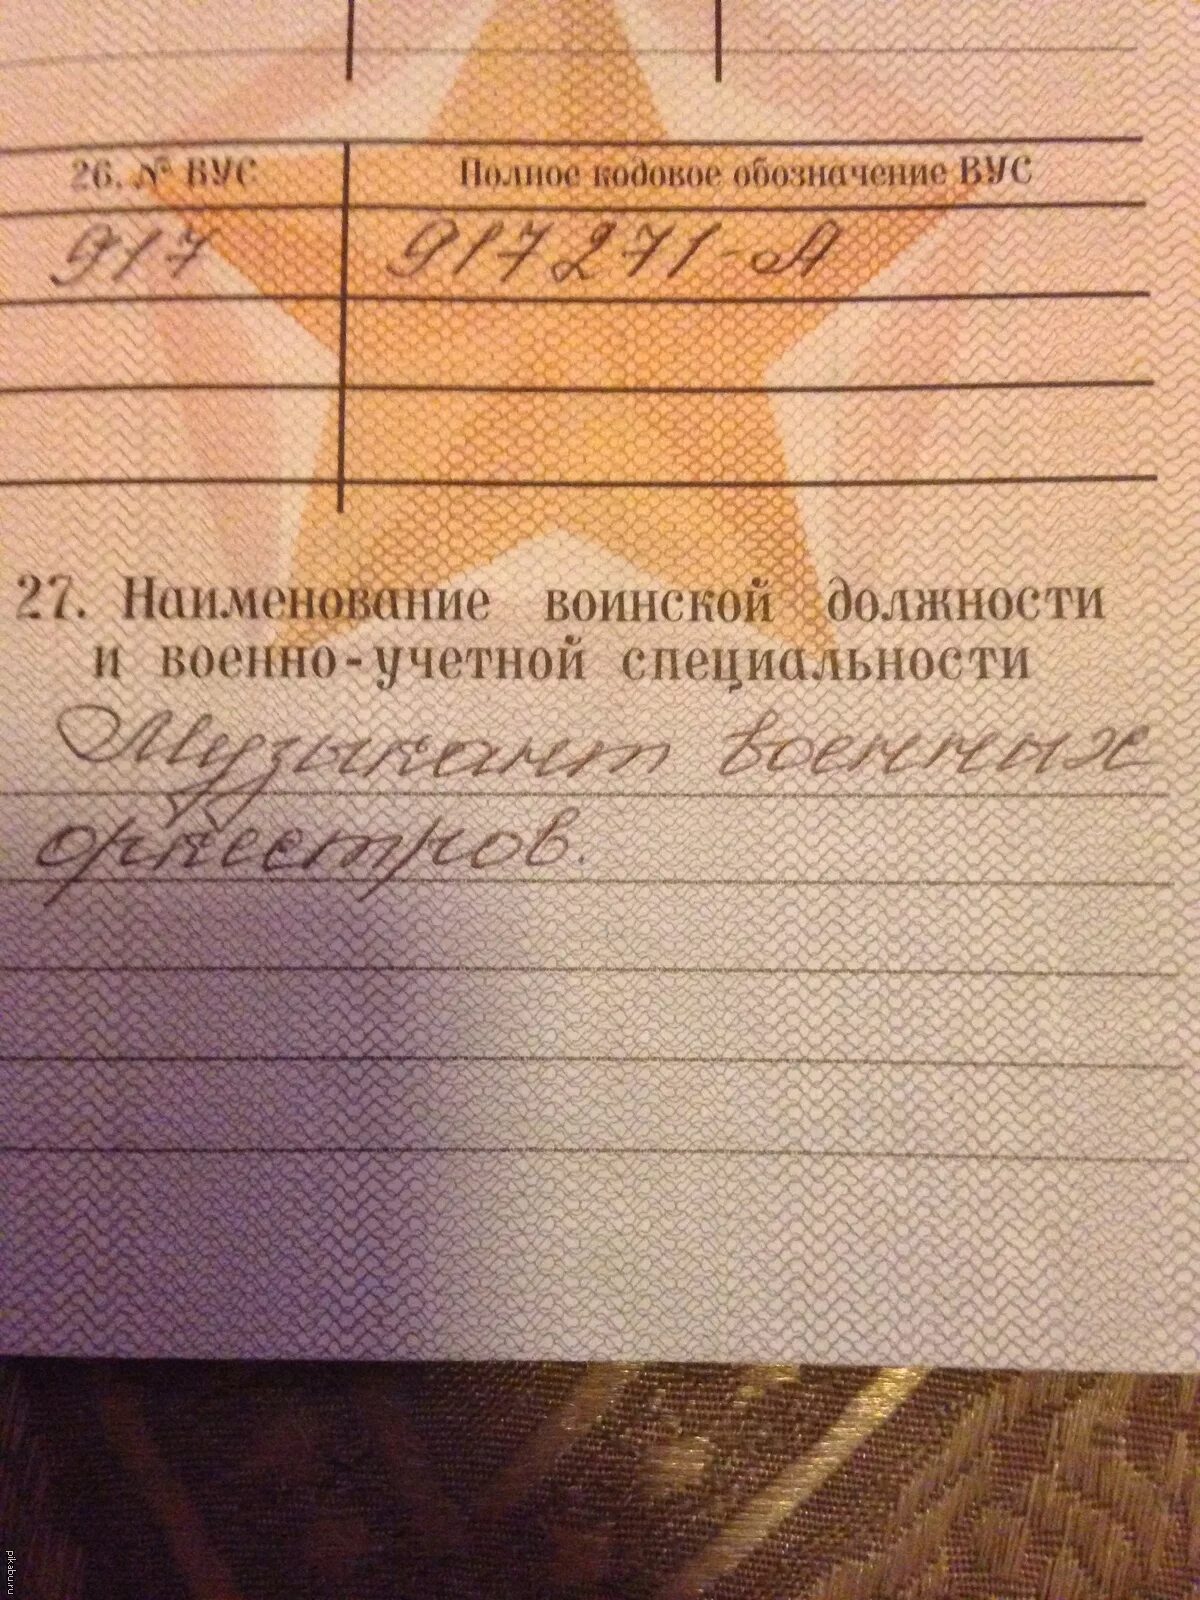 26. № ВУС Полное кодовое обозначение ВУС
917 917 271-А
27. Наименование воинской должности
и военно-учетной специальности
Музыкант военных
оркестров.
pikabu.ru